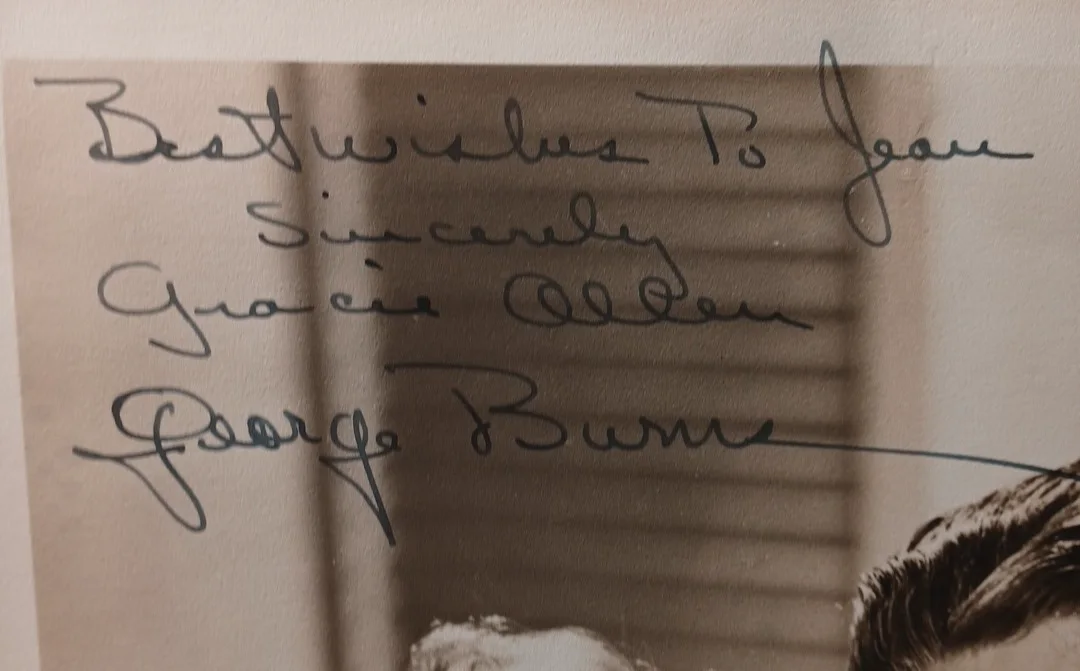 Best wishes To Jean
Sincerely
Gracie Allen
George Burns